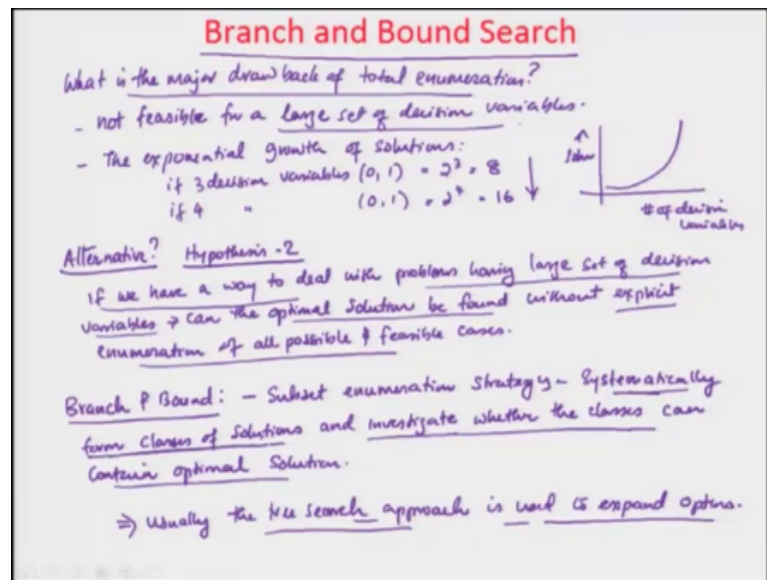 Branch and Bound Search
What is the major drawback of total enumeration?
- not feasible for a large set of decision variables.
- The exponential growth of solutions:
if 3 decision variables (0,1) = 2³ = 8
if 4 " (0,1) = 2⁴ = 16
# of decision
variables
Alternative? Hypothesis-2
If we have a way to deal with problems having large set of decision
variables → can the optimal solution be found without explicit
enumeration of all possible & feasible cases.
Branch & Bound: - Subset enumeration strategy - Systematically
form classes of solutions and investigate whether the classes can
contain optimal solution.
⇒ usually the tree search approach is used to expand options.